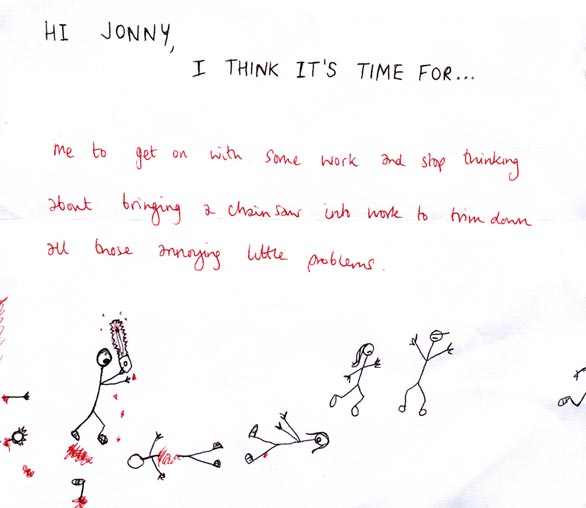 HI JONNY,
I THINK IT'S TIME FOR...
Me to get on with some work and stop thinking
about bringing a chainsaw into work to trim down
all those annoying little problems.